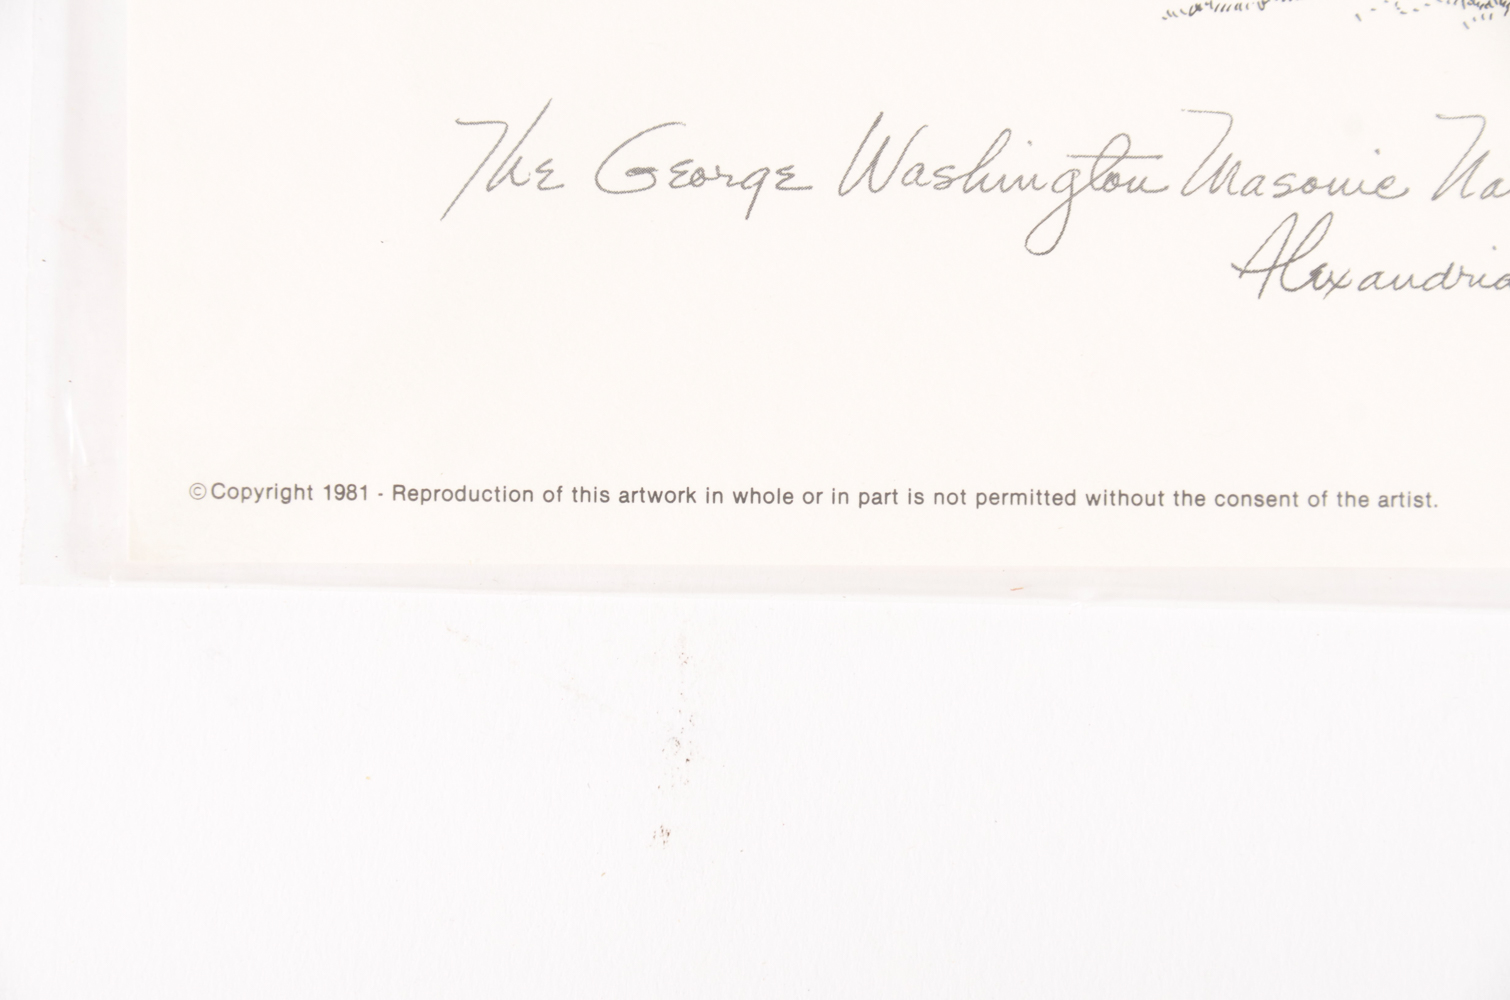 The George Washington Masonic Na
Alexandria
©Copyright 1981 - Reproduction of this artwork in whole or in part is not permitted without the consent of the artist.